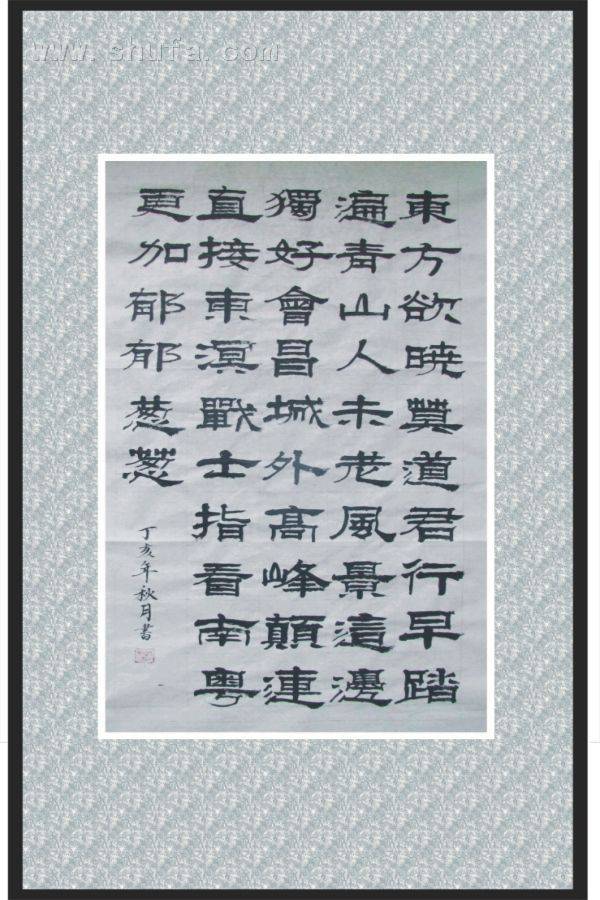 www.shufa.com
東方欲曉莫道君行早踏
遍青山人未老風景這邊
獨好會昌城外高峰顛連
直接東溟戰士指看南粵
更加郁郁葱葱
丁亥年秋月書